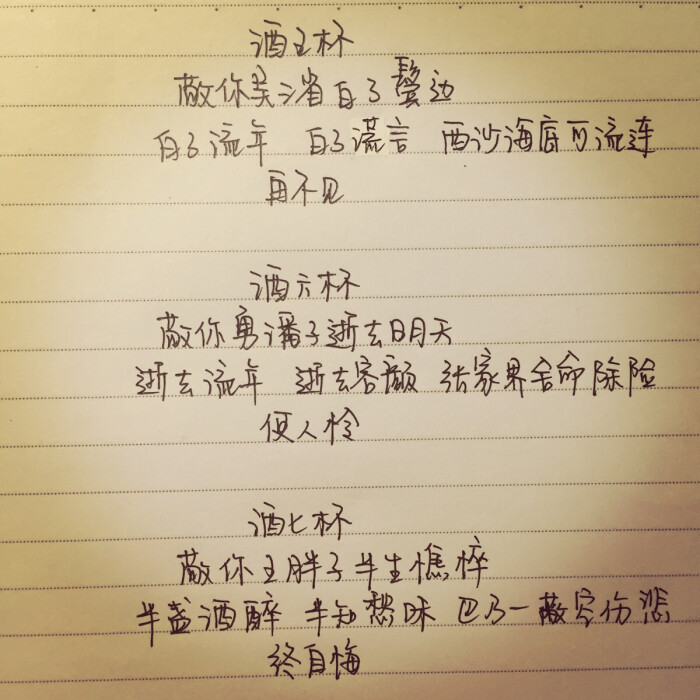 酒五杯
敬你吴三省白了鬓边
白了流年 白了谎言 西沙海底可流连
再不见
酒六杯
敬你勇潘子逝去明天
逝去流年 逝去容颜 张家界舍命除险
使人怜
酒七杯
敬你王胖子半生憔悴
半盏酒醉 半知愁味 巴乃一 伤悲
终自悔